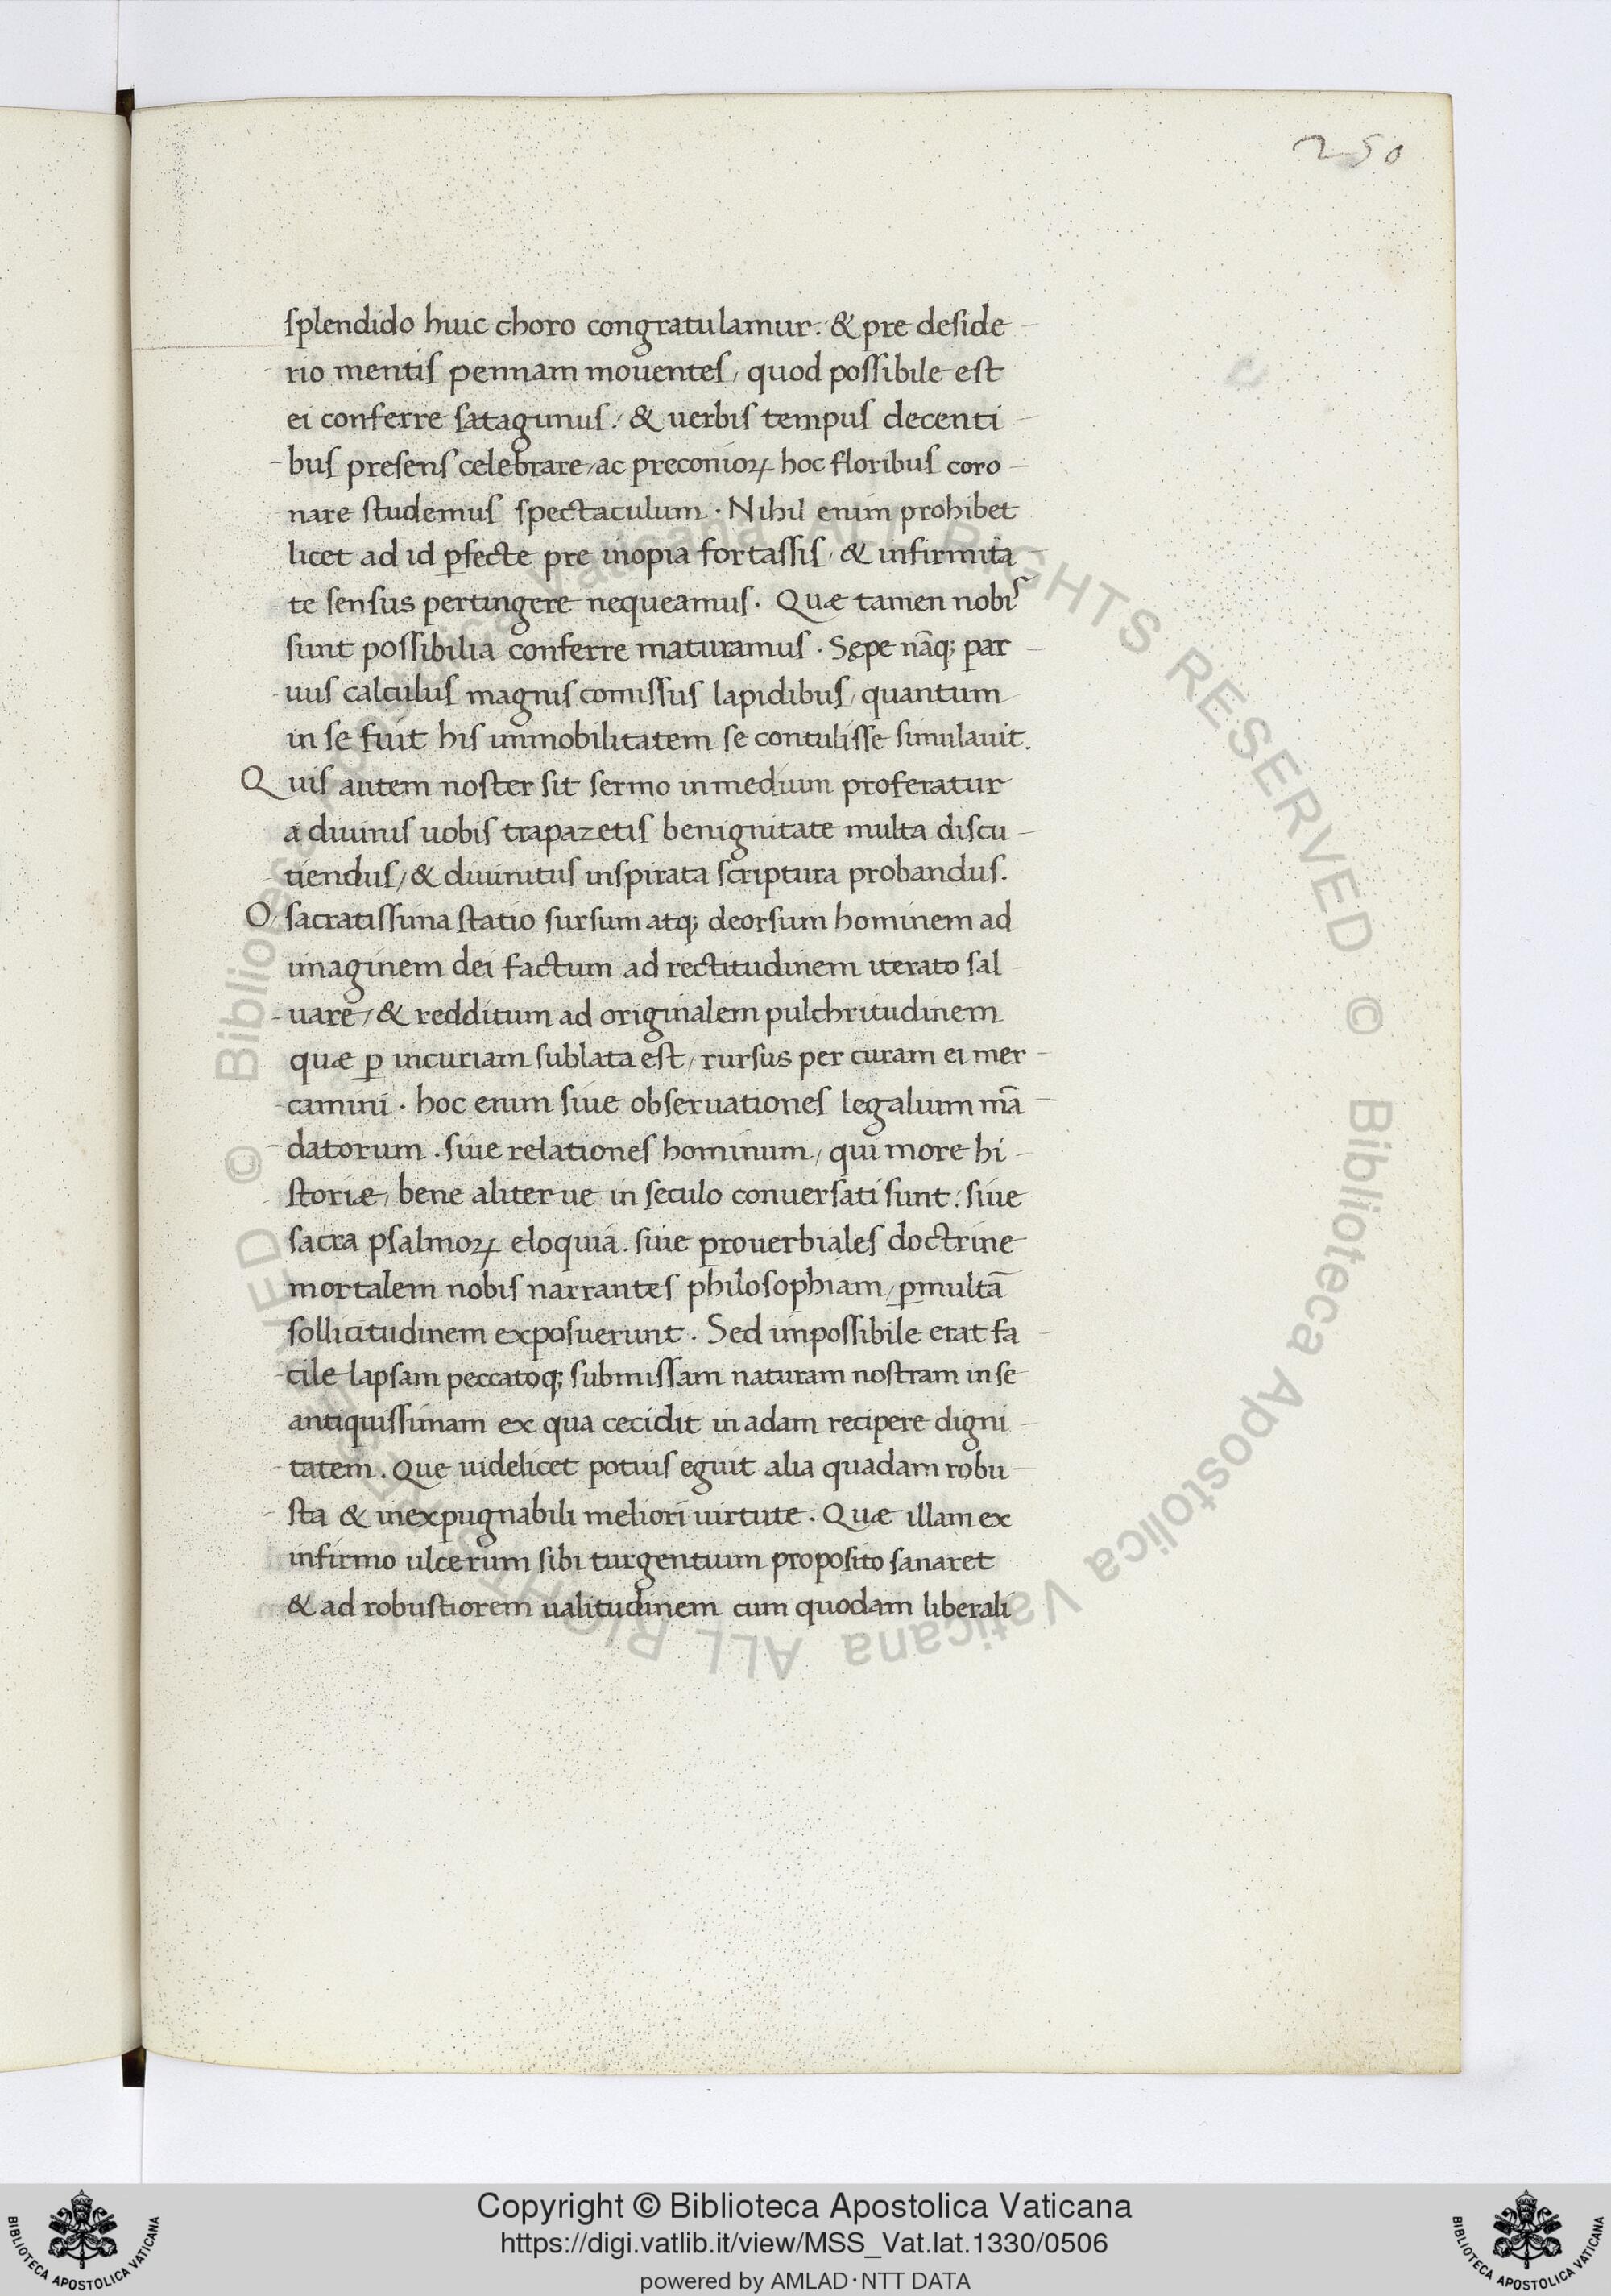 250
splendido huic choro congratulamur. & pre deside
rio mentis pennam mouentes, quod possibile est
ei conferre satagimus. & uerbis tempus decenti
bus presens celebrare, ac preconioꝝ hoc floribus coro
nare studemus spectaculum. Nihil enim prohibet
licet ad id ꝑfecte pre inopia fortassis, & infirmita
te sensus pertingere nequeamus. Quæ tamen nobis
sunt possibilia conferre maturamus. Sępe nāq; par
uus calculus magnis comissus lapidibus, quantum
in se fuit his immobilitatem se contulisse simulauit.
Quis autem noster sit sermo in medium proferatur
a diuinis uobis trapazetis benignitate multa discu
tiendus, & diuinitus inspirata scriptura probandus.
O sacratissima statio sursum atq; deorsum hominem ad
imaginem dei factum ad rectitudinem iterato sal
uare, & redditum ad originalem pulchritudinem
quæ ꝑ incuriam sublata est, rursus per curam ei mer
camini. hoc enim siue obseruationes legalium mā
datorum. siue relationes hominum, qui more hi
storiæ, bene aliter ue in seculo conuersati sunt. siue
sacra psalmoꝝ eloquia. siue prouerbiales doctrine
mortalem nobis narrantes philosophiam, ꝑmultā
sollicitudinem exposuerunt. Sed impossibile erat fa
cile lapsam peccatoq; submissam naturam nostram in se
antiquissimam ex qua cecidit in adam recipere digni
tatem. Que uidelicet potuis eguit alia quadam robu
sta & inexpugnabili meliori uirtute. Quæ illam ex
infirmo ulcerum sibi turgentium proposito sanaret
& ad robustiorem ualitudinem cum quodam liberali
© Biblioteca Apostolica Vaticana ALL RIGHTS RESERVED
© Biblioteca Apostolica Vaticana ALL RIGHTS RESERVED
Copyright © Biblioteca Apostolica Vaticana
https://digi.vatlib.it/view/MSS_Vat.lat.1330/0506
powered by AMLAD·NTT DATA
BIBLIOTECA APOSTOLICA VATICANA
BIBLIOTECA APOSTOLICA VATICANA